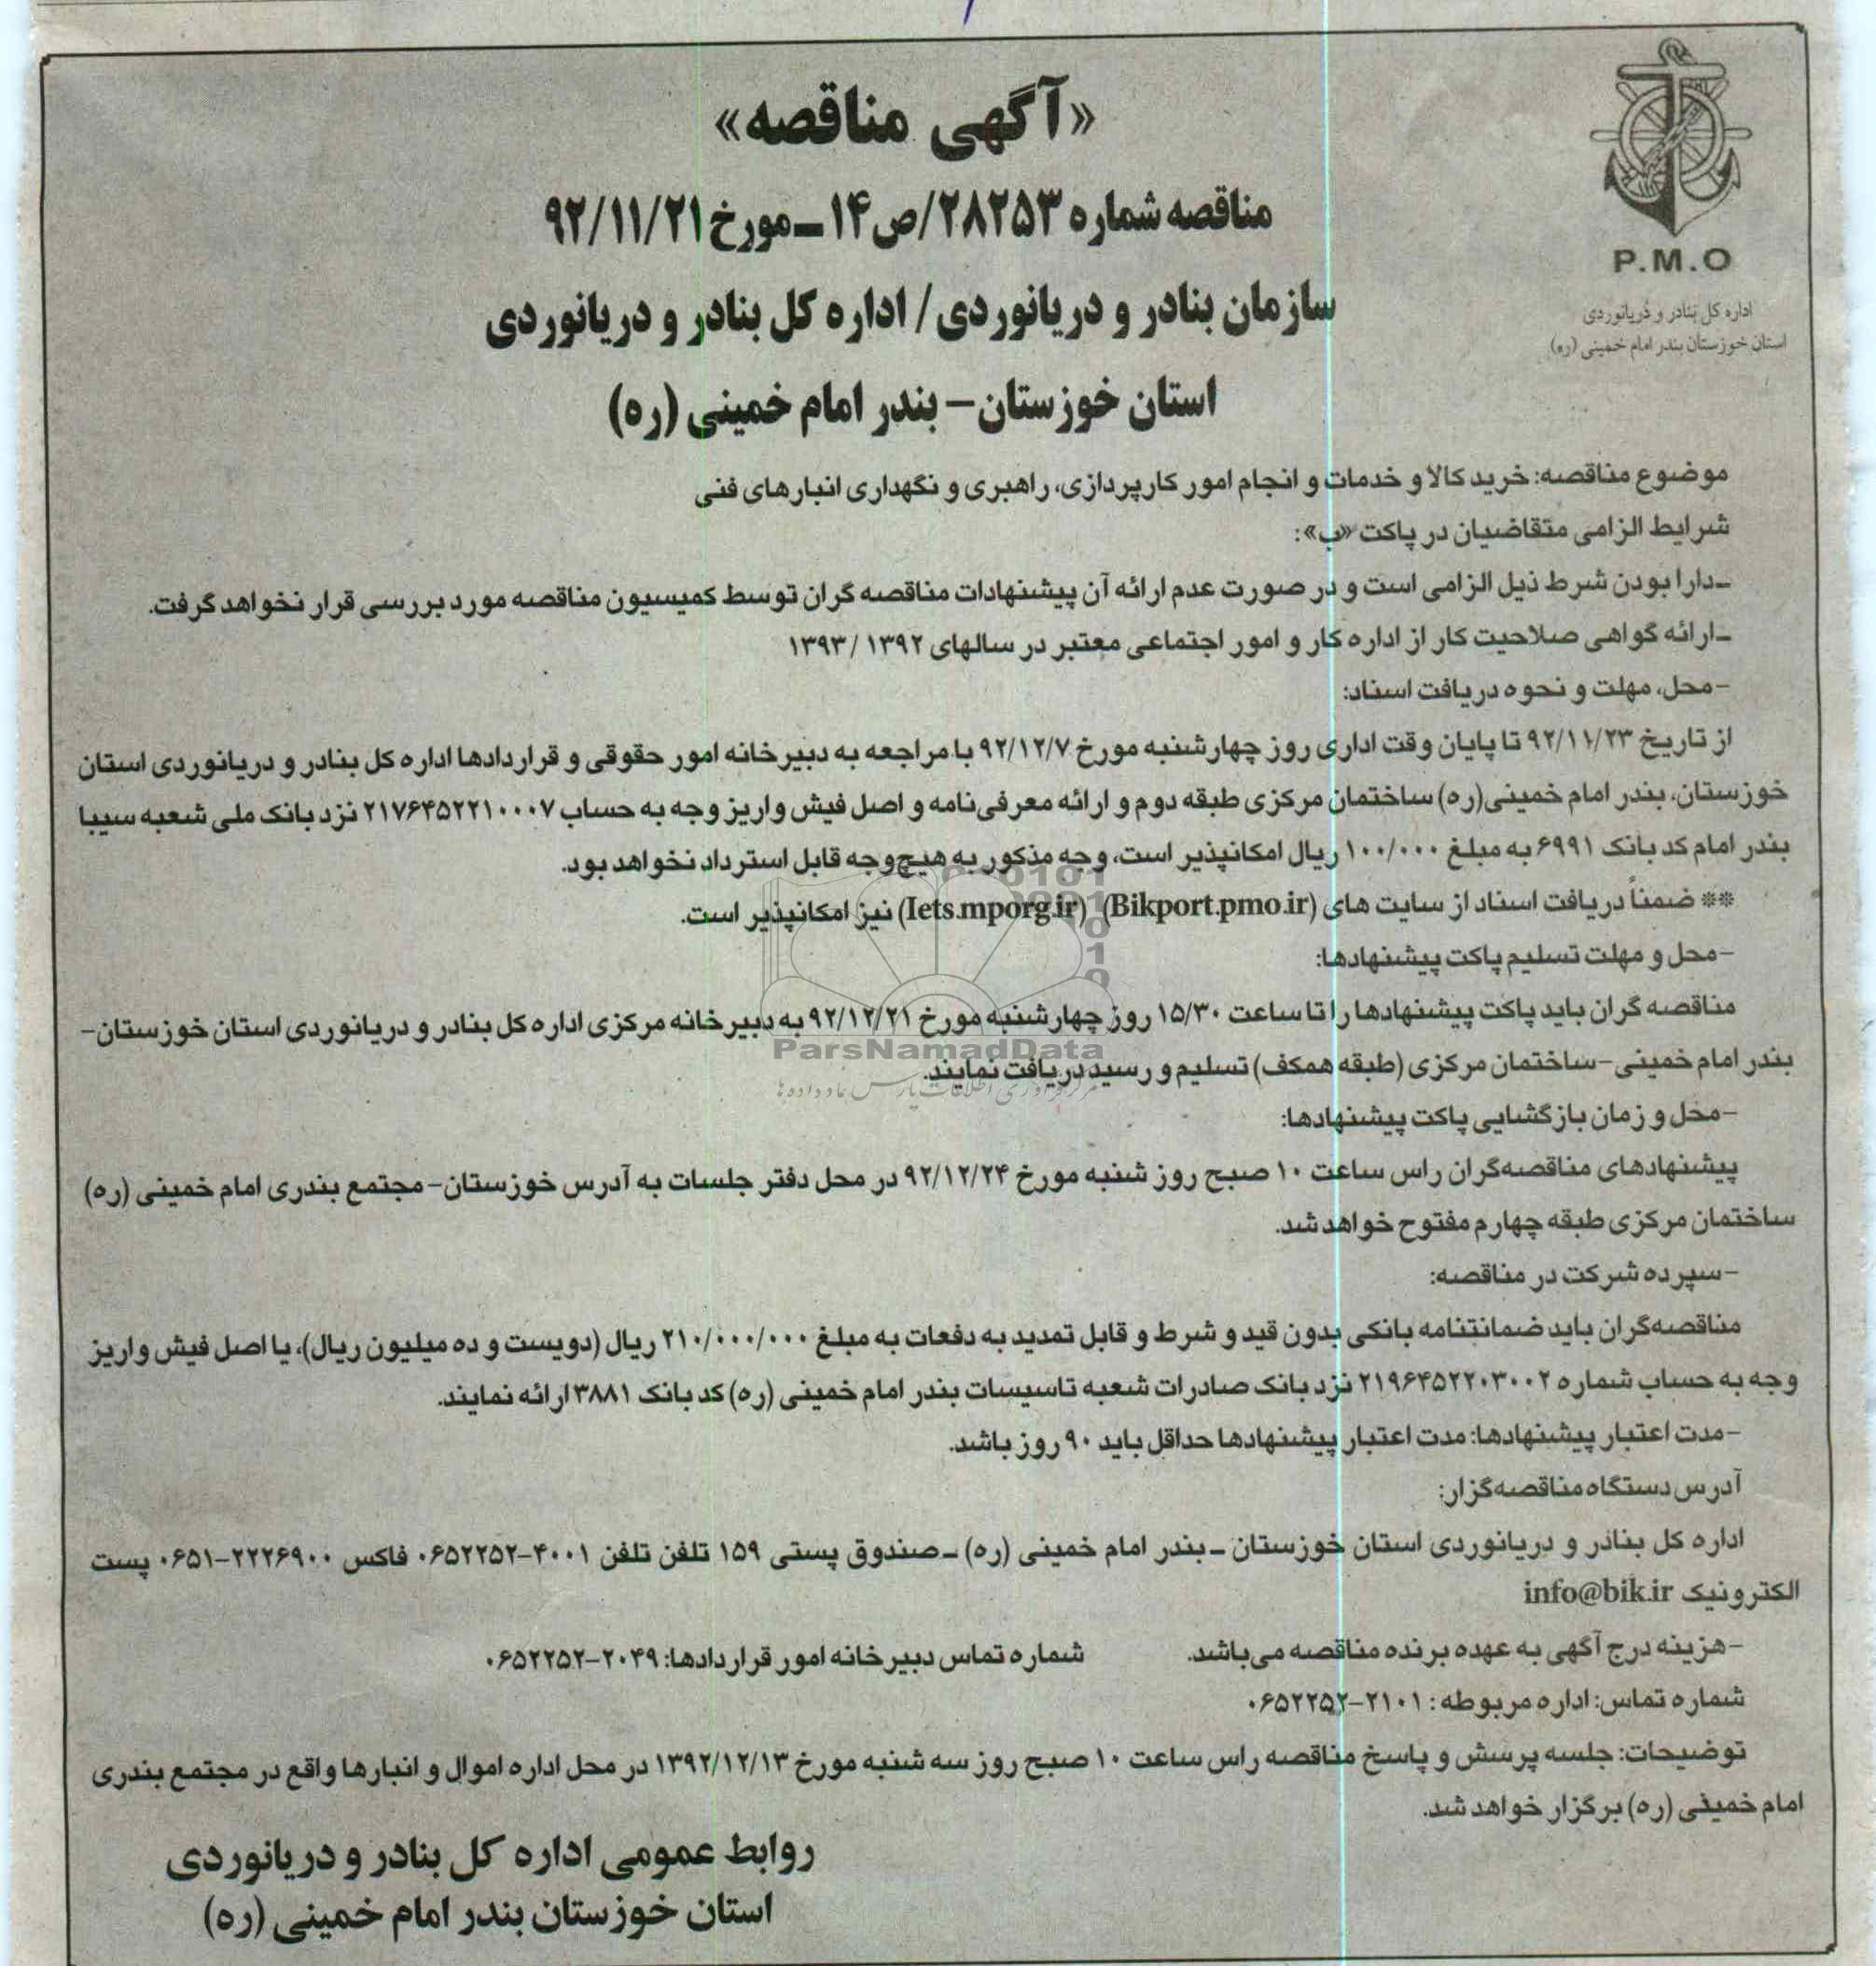 «آگهی مناقصه»
مناقصه شماره ۲۸۲۵۳/ص۱۴ ـ مورخ ۹۲/۱۱/۲۱
سازمان بنادر و دریانوردی/ اداره کل بنادر و دریانوردی
استان خوزستان- بندر امام خمینی (ره)
P.M.O
اداره کل بنادر و دریانوردی
استان خوزستان بندر امام خمینی (ره)
موضوع مناقصه: خرید کالا و خدمات و انجام امور کارپردازی، راهبری و نگهداری انبارهای فنی
شرایط الزامی متقاضیان در پاکت «ب»:
ـدارا بودن شرط ذیل الزامی است و در صورت عدم ارائه آن پیشنهادات مناقصه گران توسط کمیسیون مناقصه مورد بررسی قرار نخواهد گرفت.
ـارائه گواهی صلاحیت کار از اداره کار و امور اجتماعی معتبر در سالهای ۱۳۹۲ /۱۳۹۳
-محل، مهلت و نحوه دریافت اسناد:
از تاریخ ۹۲/۱۱/۲۳ تا پایان وقت اداری روز چهارشنبه مورخ ۹۲/۱۲/۷ با مراجعه به دبیرخانه امور حقوقی و قراردادها اداره کل بنادر و دریانوردی استان
خوزستان، بندر امام خمینی(ره) ساختمان مرکزی طبقه دوم و ارائه معرفی‌نامه و اصل فیش واریز وجه به حساب ۲۱۷۶۴۵۲۲۱۰۰۰۷ نزد بانک ملی شعبه سیبا
بندر امام کد بانک ۶۹۹۱ به مبلغ ۱۰۰/۰۰۰ ریال امکانپذیر است، وجه مذکور به هیچ‌وجه قابل استرداد نخواهد بود.
** ضمناً دریافت اسناد از سایت های (Bikport.pmo.ir) (Iets.mporg.ir) نیز امکانپذیر است.
-محل و مهلت تسلیم پاکت پیشنهادها:
مناقصه گران باید پاکت پیشنهادها را تا ساعت ۱۵/۳۰ روز چهارشنبه مورخ ۹۲/۱۲/۲۱ به دبیرخانه مرکزی اداره کل بنادر و دریانوردی استان خوزستان-
بندر امام خمینی-ساختمان مرکزی (طبقه همکف) تسلیم و رسید دریافت نمایند.
ParsNamadData
-محل و زمان بازگشایی پاکت پیشنهادها:
پیشنهادهای مناقصه‌گران راس ساعت ۱۰ صبح روز شنبه مورخ ۹۲/۱۲/۲۴ در محل دفتر جلسات به آدرس خوزستان- مجتمع بندری امام خمینی (ره)
ساختمان مرکزی طبقه چهارم مفتوح خواهد شد.
-سپرده شرکت در مناقصه:
مناقصه‌گران باید ضمانتنامه بانکی بدون قید و شرط و قابل تمدید به دفعات به مبلغ ۲۱۰/۰۰۰/۰۰۰ ریال (دویست و ده میلیون ریال)، یا اصل فیش واریز
وجه به حساب شماره ۲۱۹۶۴۵۲۲۰۳۰۰۲ نزد بانک صادرات شعبه تاسیسات بندر امام خمینی (ره) کد بانک ۳۸۸۱ ارائه نمایند.
-مدت اعتبار پیشنهادها: مدت اعتبار پیشنهادها حداقل باید ۹۰ روز باشد.
آدرس دستگاه مناقصه‌گزار:
اداره کل بنادر و دریانوردی استان خوزستان ـ بندر امام خمینی (ره) ـ صندوق پستی ۱۵۹ تلفن تلفن ۴۰۰۱-۰۶۵۲۲۵۲ فاکس ۲۲۲۶۹۰۰-۰۶۵۱ پست
الکترونیک info@bik.ir
-هزینه درج آگهی به عهده برنده مناقصه می‌باشد. شماره تماس دبیرخانه امور قراردادها: ۲۰۴۹-۰۶۵۲۲۵۲
شماره تماس: اداره مربوطه : ۲۱۰۱-۰۶۵۲۲۵۲
توضیحات: جلسه پرسش و پاسخ مناقصه راس ساعت ۱۰ صبح روز سه شنبه مورخ ۱۳۹۲/۱۲/۱۳ در محل اداره اموال و انبارها واقع در مجتمع بندری
امام خمینی (ره) برگزار خواهد شد.
روابط عمومی اداره کل بنادر و دریانوردی
استان خوزستان بندر امام خمینی (ره)